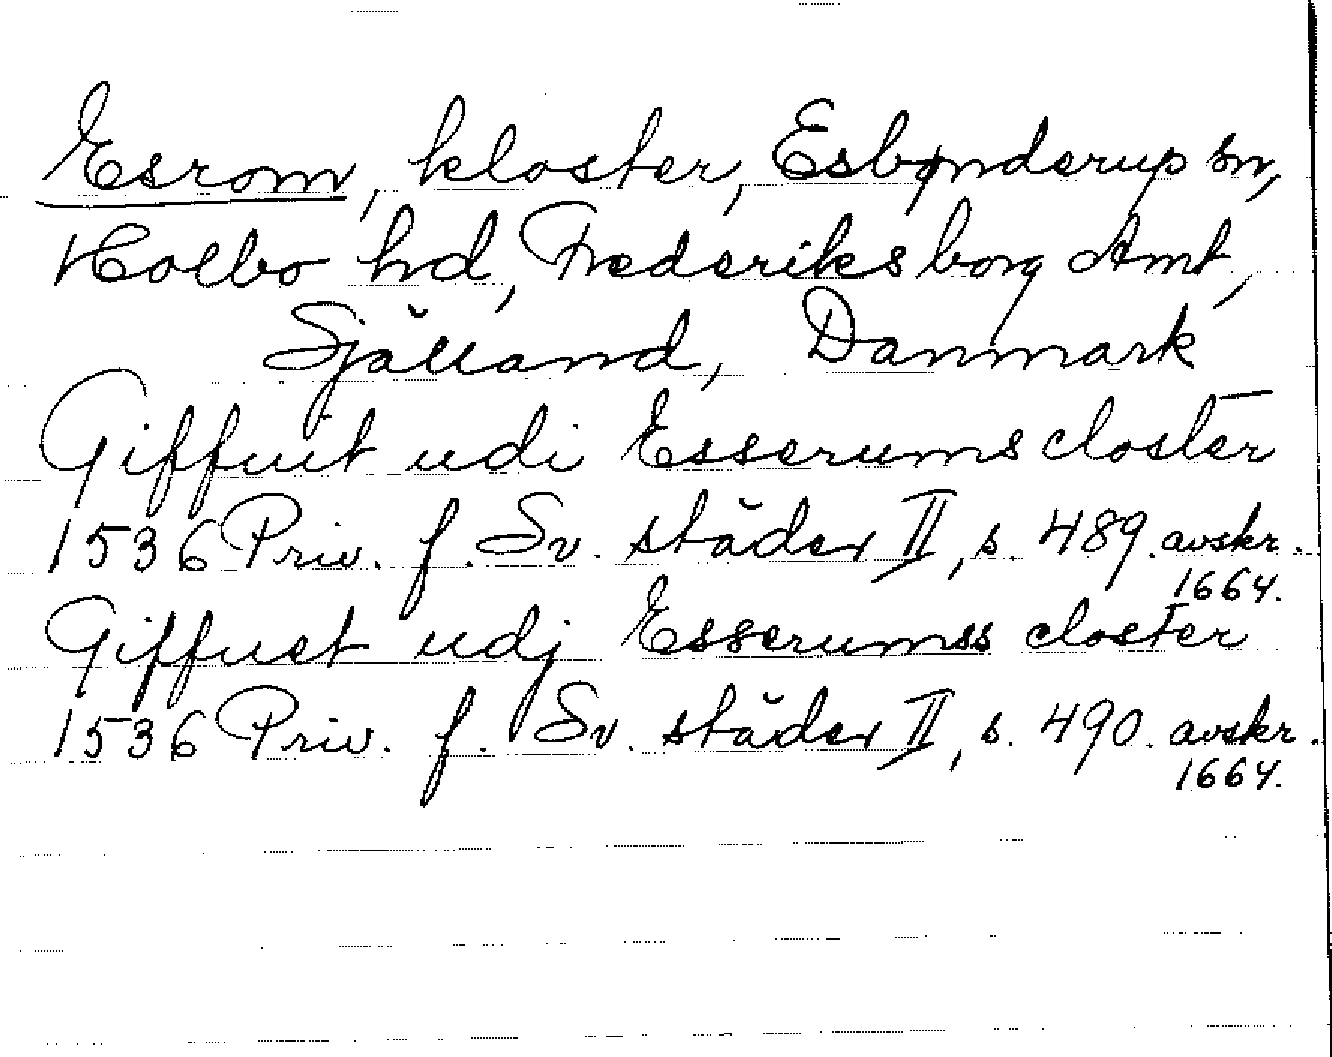 Esrom, kloster, Esbønderup sn,
Holbo hd, Frederiksborg Amt,
Själland, Danmark
Giffuit udi Esserums closter
1536 Priv. f. Sv. städer II, s. 489. avskr.
1664.
Giffuet udj Esserumss closter
1536 Priv. f. Sv. städer II, s. 490. avskr.
1664.